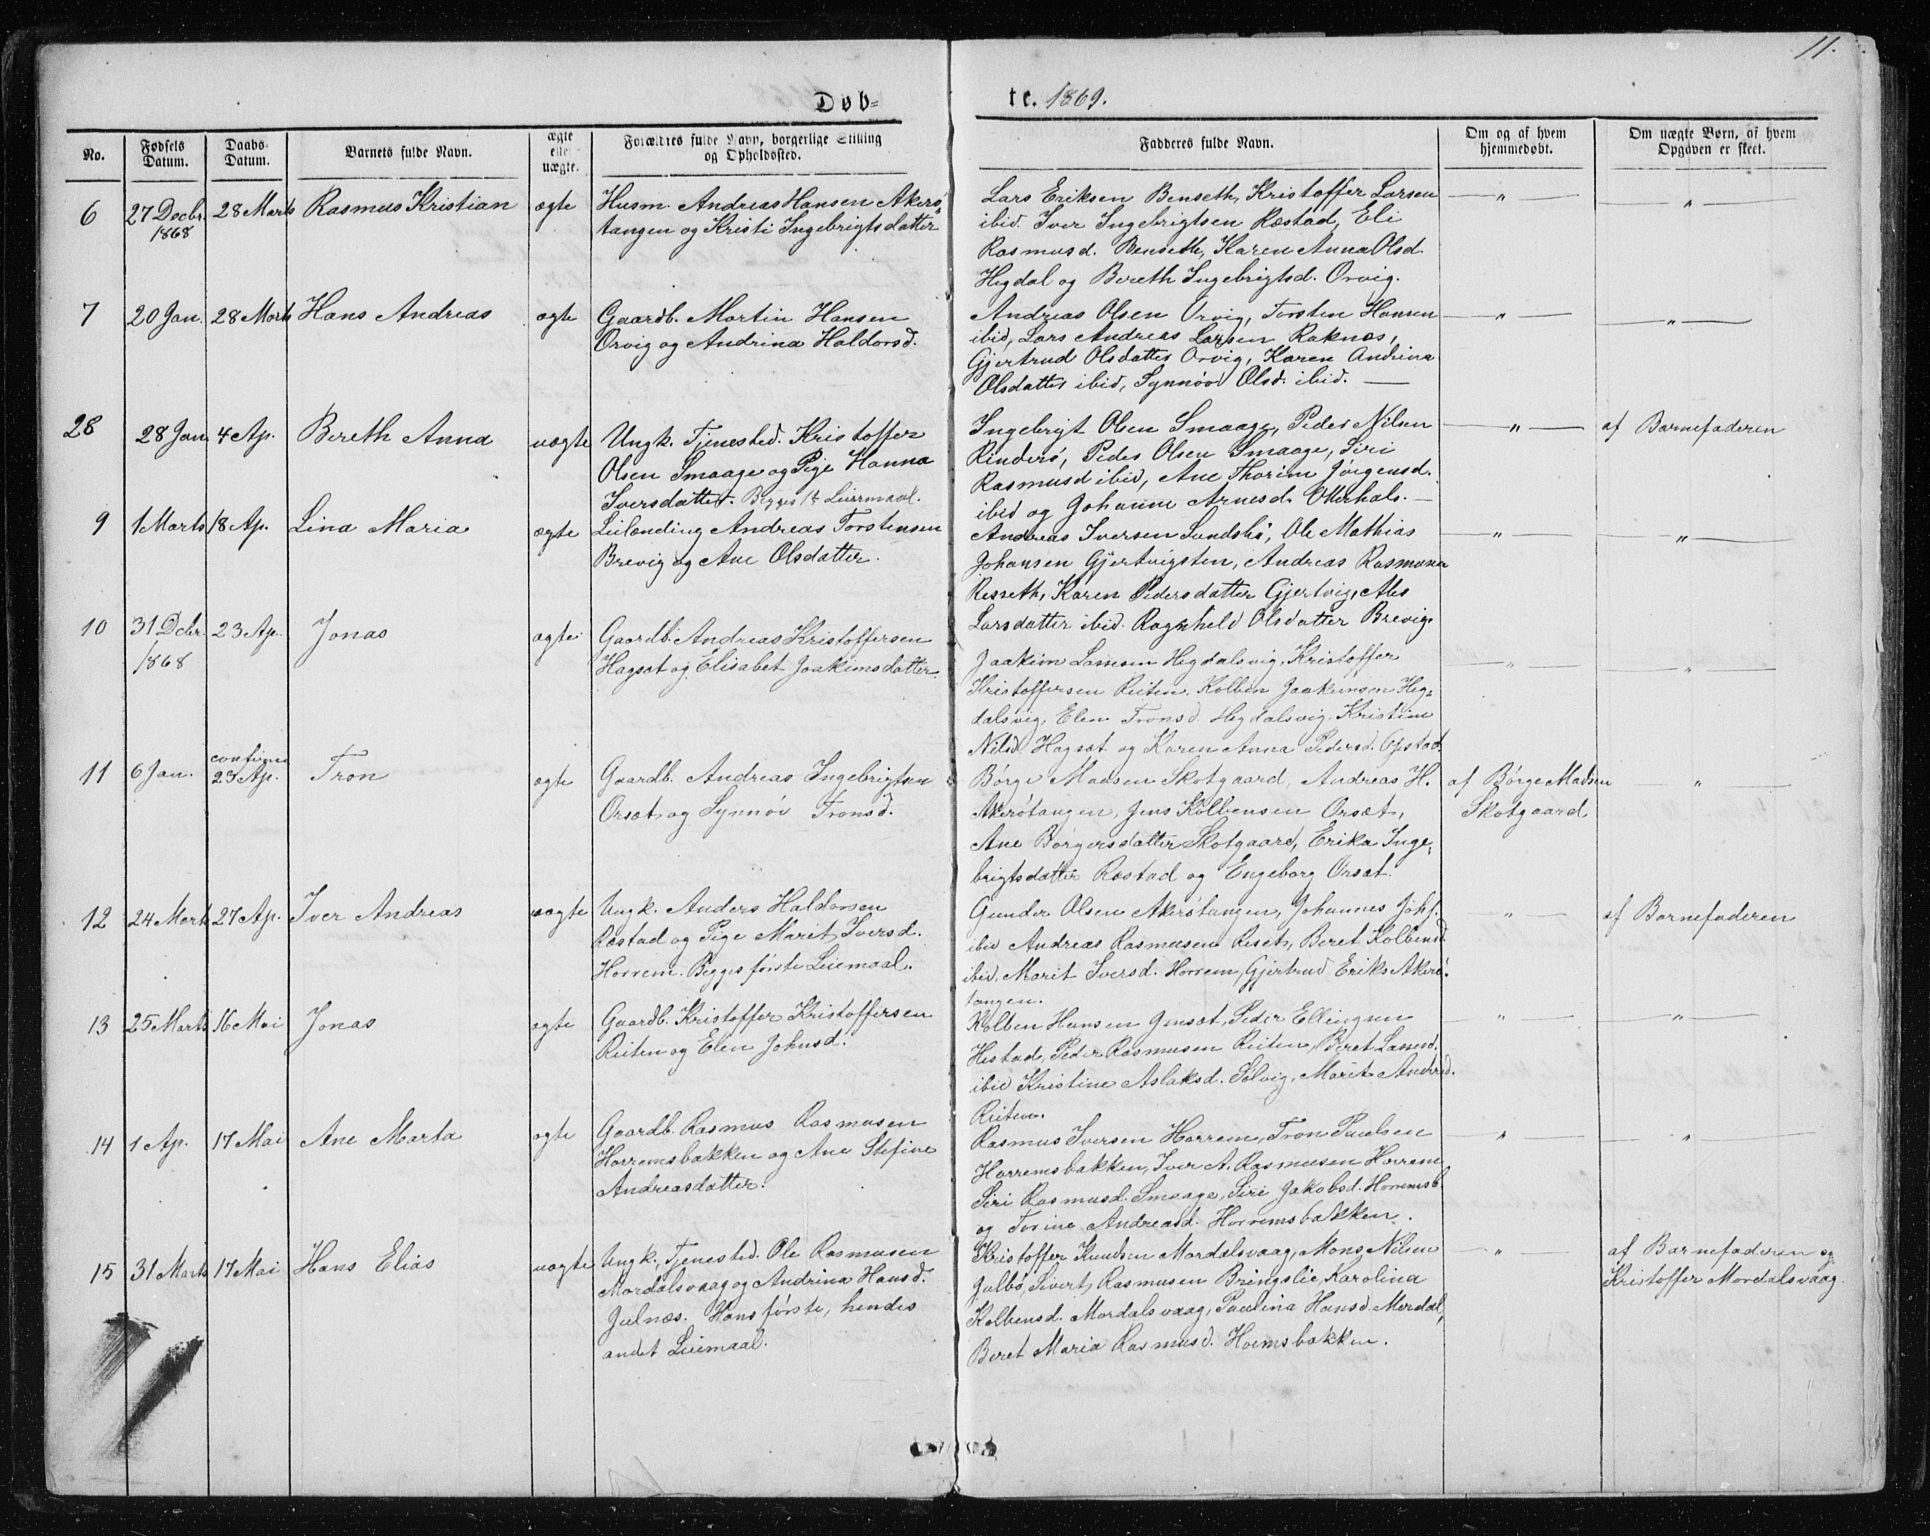 11.
Døb-
te. 1869.
No.
Fødsels Datum.
Daabs- Datum.
Barnets fulde Navn.
ægte eller uægte.
Forældres fulde Navn, borgerlige Stilling
og Opholdssted.
Fadderes fulde Navn.
Om og af hvem
hjemmedøbt.
Om uægte Børn, af hvem
Opgaven er skeet.
6 27 Decbr. 1868 28 Marts Rasmus Kristian ægte
Husm. Andreas Hansen Akerø-
tangen og Kristi Ingebrigtsdatter
Lars Eriksen Benseth, Kristoffer Larsen
ibid. Iver Ingebrigtsen Ræstad, Eli
Rasmusd. Benseth, Karen Anna Olsd.
Hegdal og Bereth Ingebrigtsd. Orvig.
— " —
— " —
7 20 Jan. 28 Marts Hans Andreas ægte
Gaardb. Martin Hansen
Orvig og Andrina Haldorsd.
Andreas Olsen Orvig, Torsten Hansen
ibid, Lars Andreas Larsen Raknæs,
Gjertrud Olsdatter Orvig, Karen Andrina
Olsdatter ibid, Synnøv Olsd. ibid. —
— " —
— " —
28 28 Jan. 4 Ap. Bereth Anna uægte
Ungk. Tjenested. Kristoffer
Olsen Smaage og Pige Hanna
Iversdatter. Begges 1ste Leiermaal.
Ingebrigt Olsen Smaage, Peder Nilsen
Rinderø, Peder Olsen Smaage, Siri
Rasmusd ibid, Ane Thorine Jørgensd.
ibid og Johanne Arnesd. Otterhals. —
— " —
af Barnefaderen
9 1 Marts 18 Ap. Lina Maria ægte
Leilending Andreas Torstensen
Brevig og Ane Olsdatter.
Andreas Iversen Sundsbø, Ole Mathias
Johansen Gjertvigsten, Andreas Rasmusen
Resseth, Karen Pedersdatter Gjertvig, Ales
Larsdatter ibid. Ragnheld Olsdatter Brevig.
— " —
— " —
10 31 Dcbr. 1868 23 Ap. Jonas ægte
Gaardb. Andreas Kristoffersen
Hagsæt og Elisabet Joakimsdatter
Joakim Lassen Hegdalsvig, Kristoffer
Kristoffersen Reiten, Kolben Joakimsen Heg-
dalsvig, Elen Tronsd. Hegdalsvig, Kristine
Nilsd Hagsæt og Karen Anna Pedersd. Opstad.
— " —
— " —
11 6 Jan. 23 Ap. Tron ægte
Gaardb. Andreas Ingebrigtsen
Orsæt og Synnøv Tronsd.
Børge Madsen Skotgaard, Andreas H.
Akerøtangen, Jens Kolbensen Orsæt,
Ane Børgersdatter Skotgaard, Erika Inge-
brigtsdatter Ræstad og Engeborg Orsæt.
af Børge Madsen
Skotgaard
— " —
12 24 Marts 27 Ap. Iver Andreas uægte
Ungk. Anders Haldorsen
Ræstad og Pige Marit Iversd.
Horrem. Begges første Leiemaal.
Gunder Olsen Akerøtangen, Johannes Johs.
ibid Andreas Rasmusen Reset, Beret Kolbensd
ibid, Marit Iversd. Horrem, Gjertrud Eriks Akerø-
tangen.
— " —
af Barnefaderen
13 25 Marts 16 Mai Jonas ægte
Gaardb. Kristoffer Kristoffersen
Reiten og Elen Johnsd.
Kolben Hansen Jensæt, Peder Ellingsen
Hestad, Peder Rasmusen Reiten, Beret Lassesd.
ibid Kristine Aslaksd. Sølvig, Marit Andersd.
Reiten.
— " —
— " —
14 1 Ap. 17 Mai Ane Marta ægte
Gaardb. Rasmus Rasmusen
Horremsbakken og Ane Stefine
Andreasdatter.
Rasmus Iversen Horrem, Tron Paulsen
Horremsbakken, Iver A. Rasmusen Horrem,
Siri Rasmusd. Smaage, Siri Jakobsd. Horremsb.
og Torine Andreasd. Horremsbakken.
— " —
— " —
15 31 Marts 17 Mai Hans Elias uægte
Ungk., Tjenested. Ole Rasmusen
Mordalsvaag og Andrina Hansd.
Julnæs. Hans første, hendes
andet Leiemaal.
Kristoffer Knudsen Mordalsvaag, Mons Nilsen
Julbø, Sivert Rasmusen Bringslie, Karolina
Kolbensd. Mordalsvaag, Paulina Hansd. Mordal,
Beret Maria Rasmusd. Hormsbakken.
— " —
af Barnefaderen og
Kristoffer Mordalsvaag.